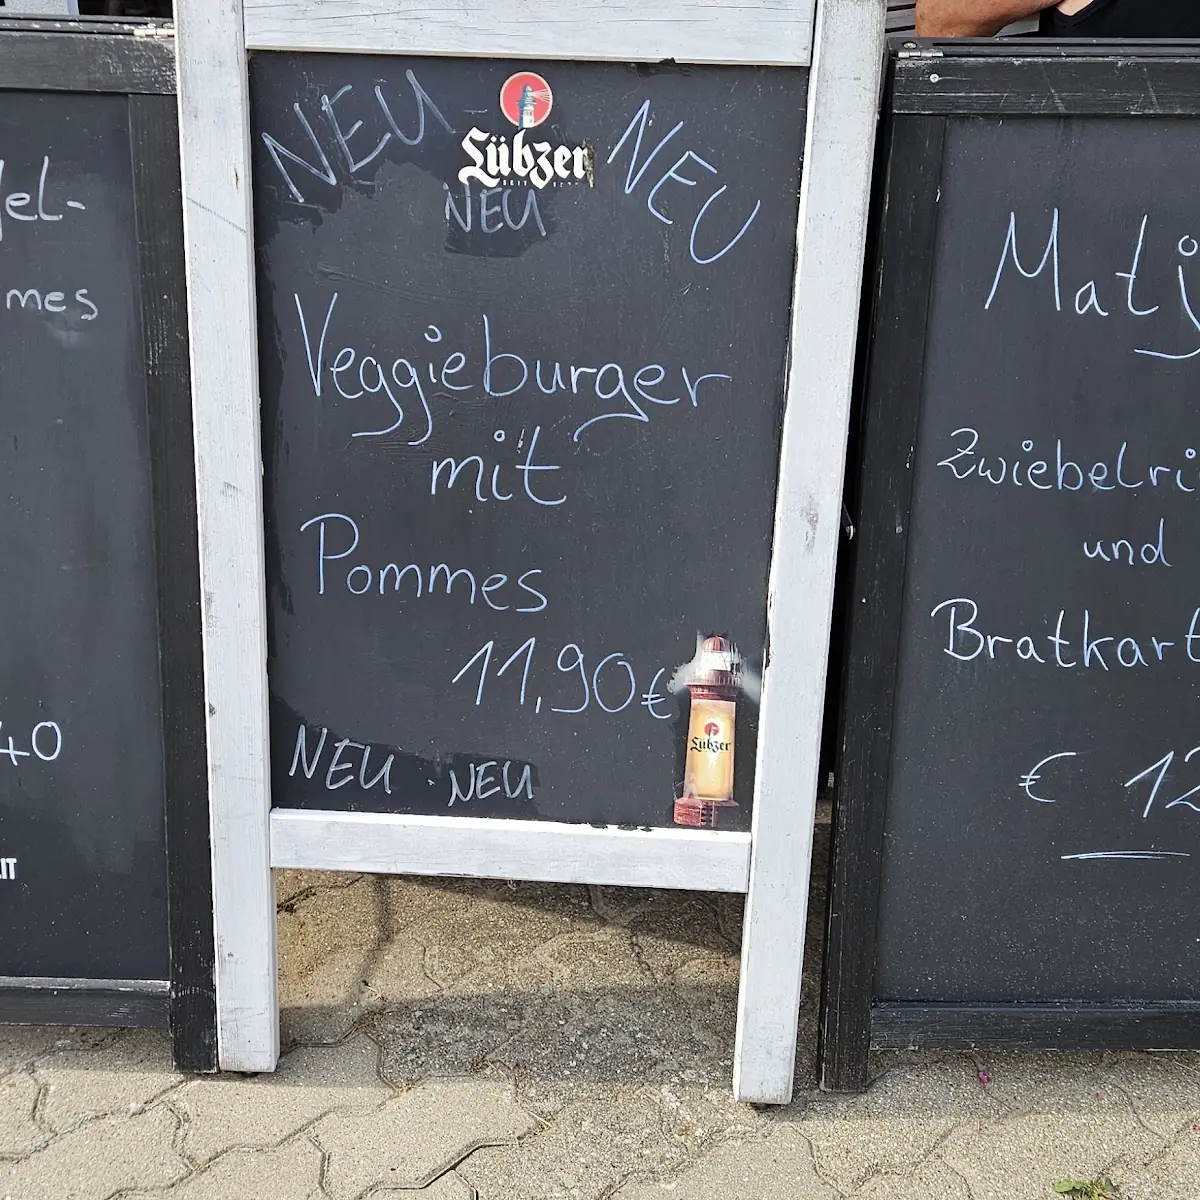 NEU
Lübzer
NEU
NEU
Veggieburger
mit
Pommes
11,90€
NEU . NEU
Lübzer
mes
40
Zwiebelri
und
Bratkart
€ 12